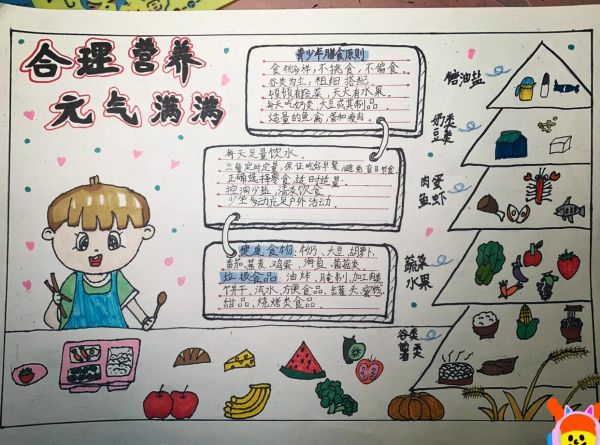 合理营养
元气满满
青少年膳食原则
食物多样，不挑食，不偏食
谷类为主，粗细搭配
顿顿有蔬菜，天天有水果
每天吃奶类、大豆或其制品
适量的鱼、禽、蛋和瘦肉
每天足量饮水。
三餐定时定量，保证吃好早餐，避免盲目节食
正确选择零食，适时适量
控油少盐，清淡饮食
少坐多动，充足户外活动。
健康食物：牛奶、大豆、胡萝卜、
番茄、荞麦、鸡蛋、海鱼、菌菇类
垃圾食品：油炸、腌制、加工肉类
饼干、汽水、方便食品、
甜品、烧烤类食品。
糖油盐
奶类
豆类
肉蛋
鱼虾
蔬菜
水果
谷类
薯类